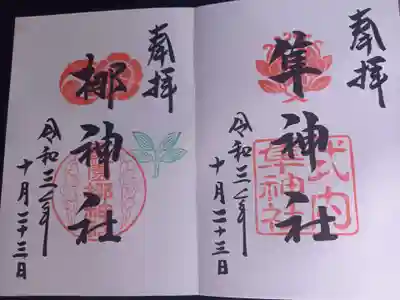 奉拝
隼神社
式内
隼神社
令和三年
十月二十三日
奉拝
梛神社
令和三年
十月二十三日